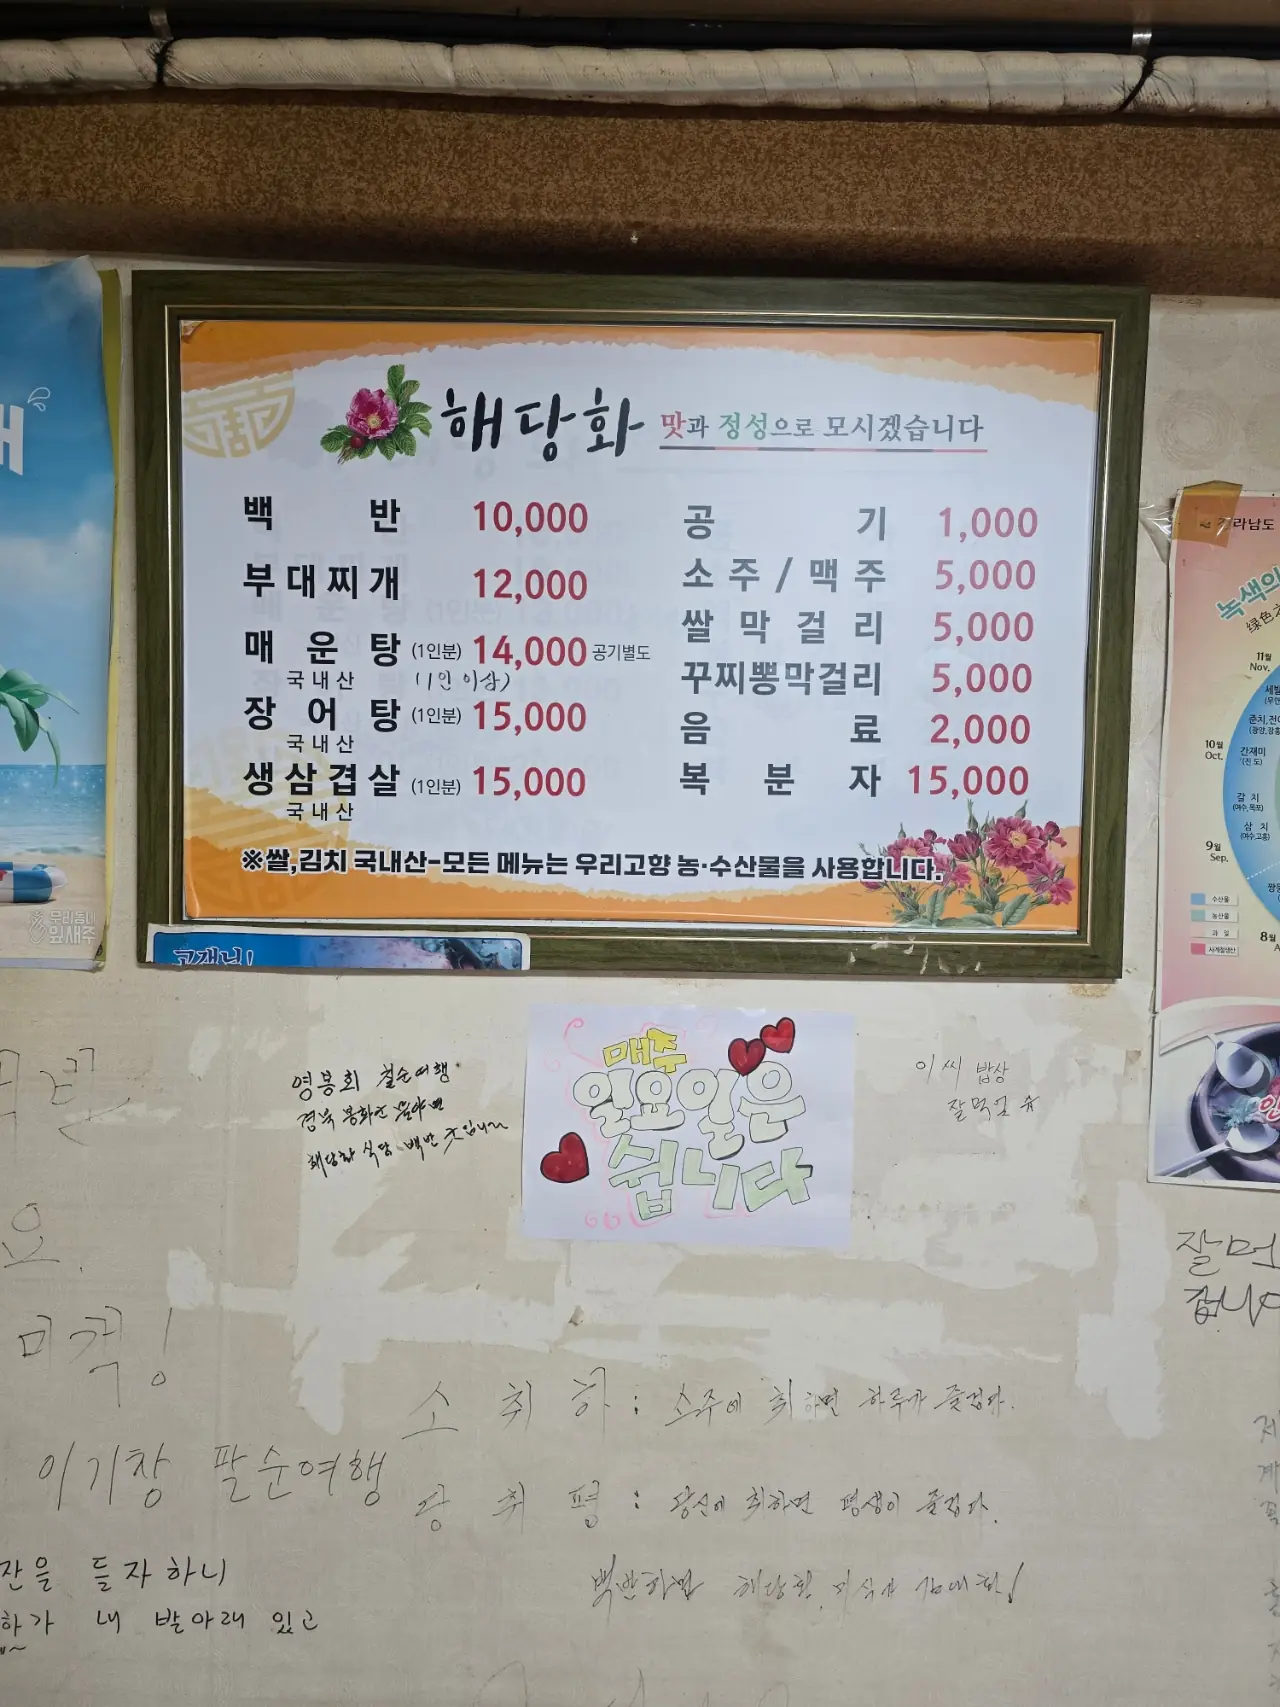 해당화 맛과 정성으로 모시겠습니다
백반 10,000
부대찌개 12,000
매운탕 (1인분) 14,000 공기별도
국내산 (1인 이상)
장어탕 (1인분) 15,000
국내산
생삼겹살 (1인분) 15,000
국내산
공기 1,000
소주/맥주 5,000
쌀막걸리 5,000
꾸찌뽕막걸리 5,000
음료 2,000
복분자 15,000
※쌀,김치 국내산-모든 메뉴는 우리고향 농·수산물을 사용합니다.
고객님!
우리동네
잎새주
라남도
녹색의
绿色
11월
Nov.
10월
Oct.
간재미
갈치
(여수,목포)
삼치
(여수,고흥)
9월
Sep.
8월
수산물
농산물
과일
사계절생산
매주
일요일은
쉽니다
영봉회 팔순여행
경북 봉화
해당화 식당 백반
이씨 밥상
잘먹
잘머
갑니다
요.
이기창 팔순여행
소취하 : 소주에 취하면 하루가 즐겁다.
당취평 : 당신에 취하면 평생이 즐겁다.
백반하면 해당화
잔을 들자하니
하가 내 발아래 있고